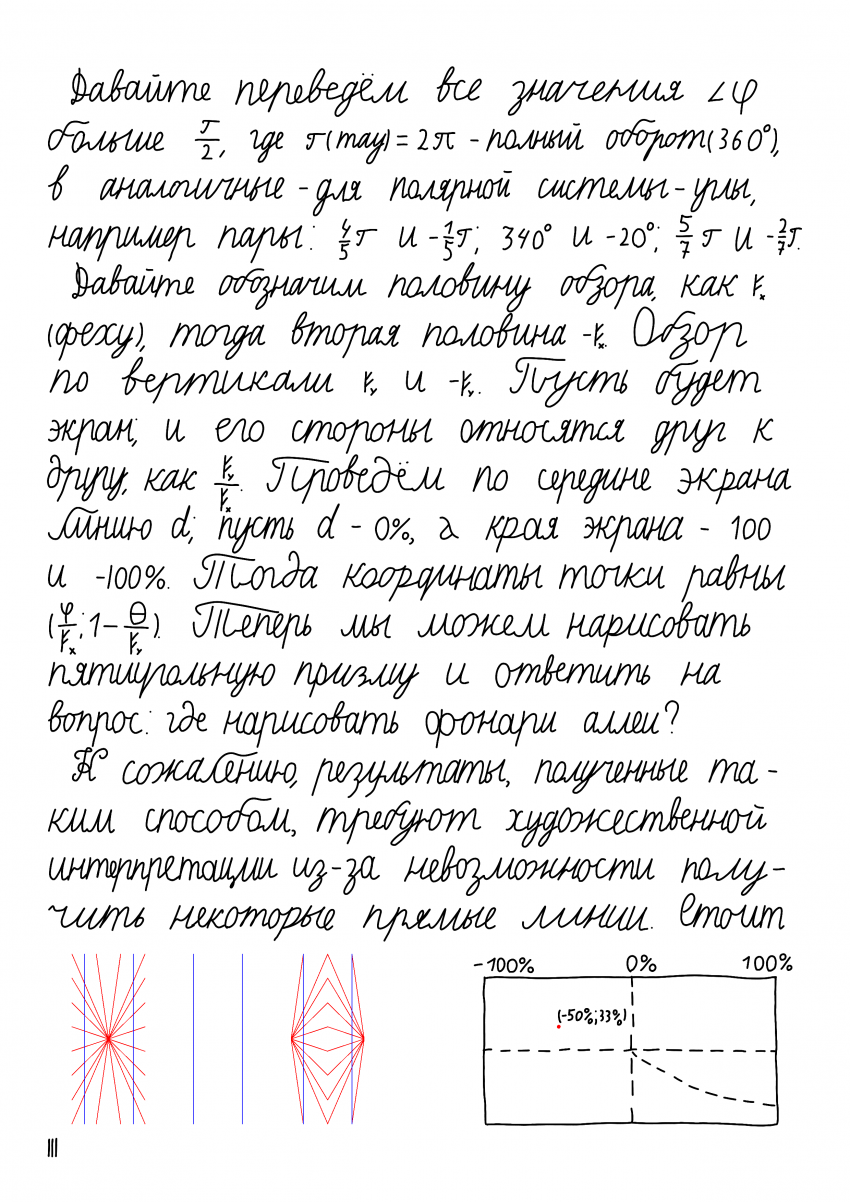 Давайте переведём все значения ∠φ
больше τ/2, где τ(тау)=2π - полный оборот(360°),
в аналогичные - для полярной системы - углы,
например пары: 4/5τ и -1/5τ; 340° и -20°; 5/7τ и -2/7τ.
Давайте обозначим половину обзора, как ᚩₓ
(феху), тогда вторая половина -ᚠₓ. Обзор
по вертикали ᚠᵧ и -ᚠᵧ. Пусть будет
экран; и его стороны относятся друг к
другу, как ᚠᵧ/ᚠₓ. Проведём по середине экрана
линию d; пусть d - 0%, а края экрана - 100
и -100%. Тогда координаты точки равны
(φ/ᚠₓ;1-θ/ᚠᵧ). Теперь мы можем нарисовать
пятиугольную призму и ответить на
вопрос: где нарисовать фонари аллеи?
К сожалению, результаты, полученные та-
ким способом, требуют художественной
интерпретации из-за невозможности полу-
чить некоторые прямые линии. Стоит
-100% 0% 100%
(-50%;33%)
III